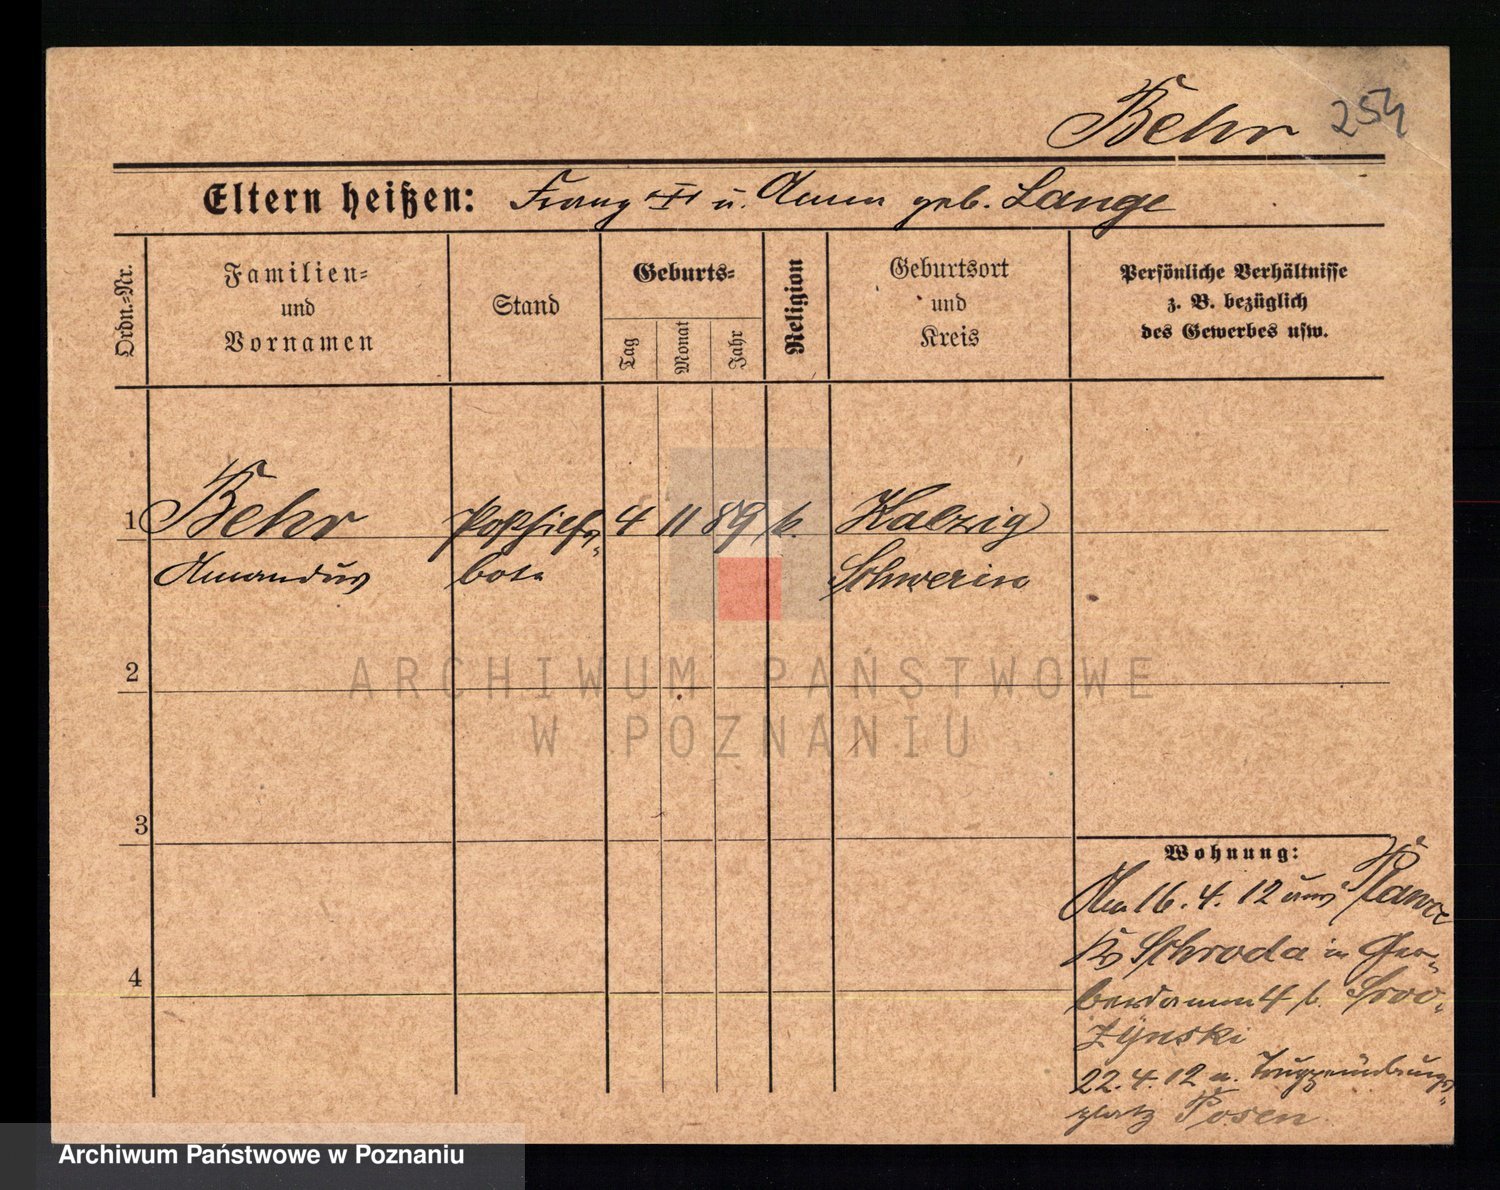 Behr 254
Eltern heißen: Franz u. Anna geb. Lange
Ordn.=Nr.
Familien=
und
Vornamen
Stand
Geburts=
Tag
Monat
Jahr
Religion
Geburtsort
und
Kreis
Persönliche Verhältnisse
z. B. bezüglich
des Gewerbes usw.
1 Behr 4 11 89 k. Kalzig
Amandus bote Schwerin
2
3
4
Wohnung:
Am 16.4.12 aus
Schroda in Ger=
berdamm 4 b.
22.4.12 n. Truppenübungs=
platz Posen.
ARCHIWUM PAŃSTWOWE
W POZNANIU
Archiwum Państwowe w Poznaniu